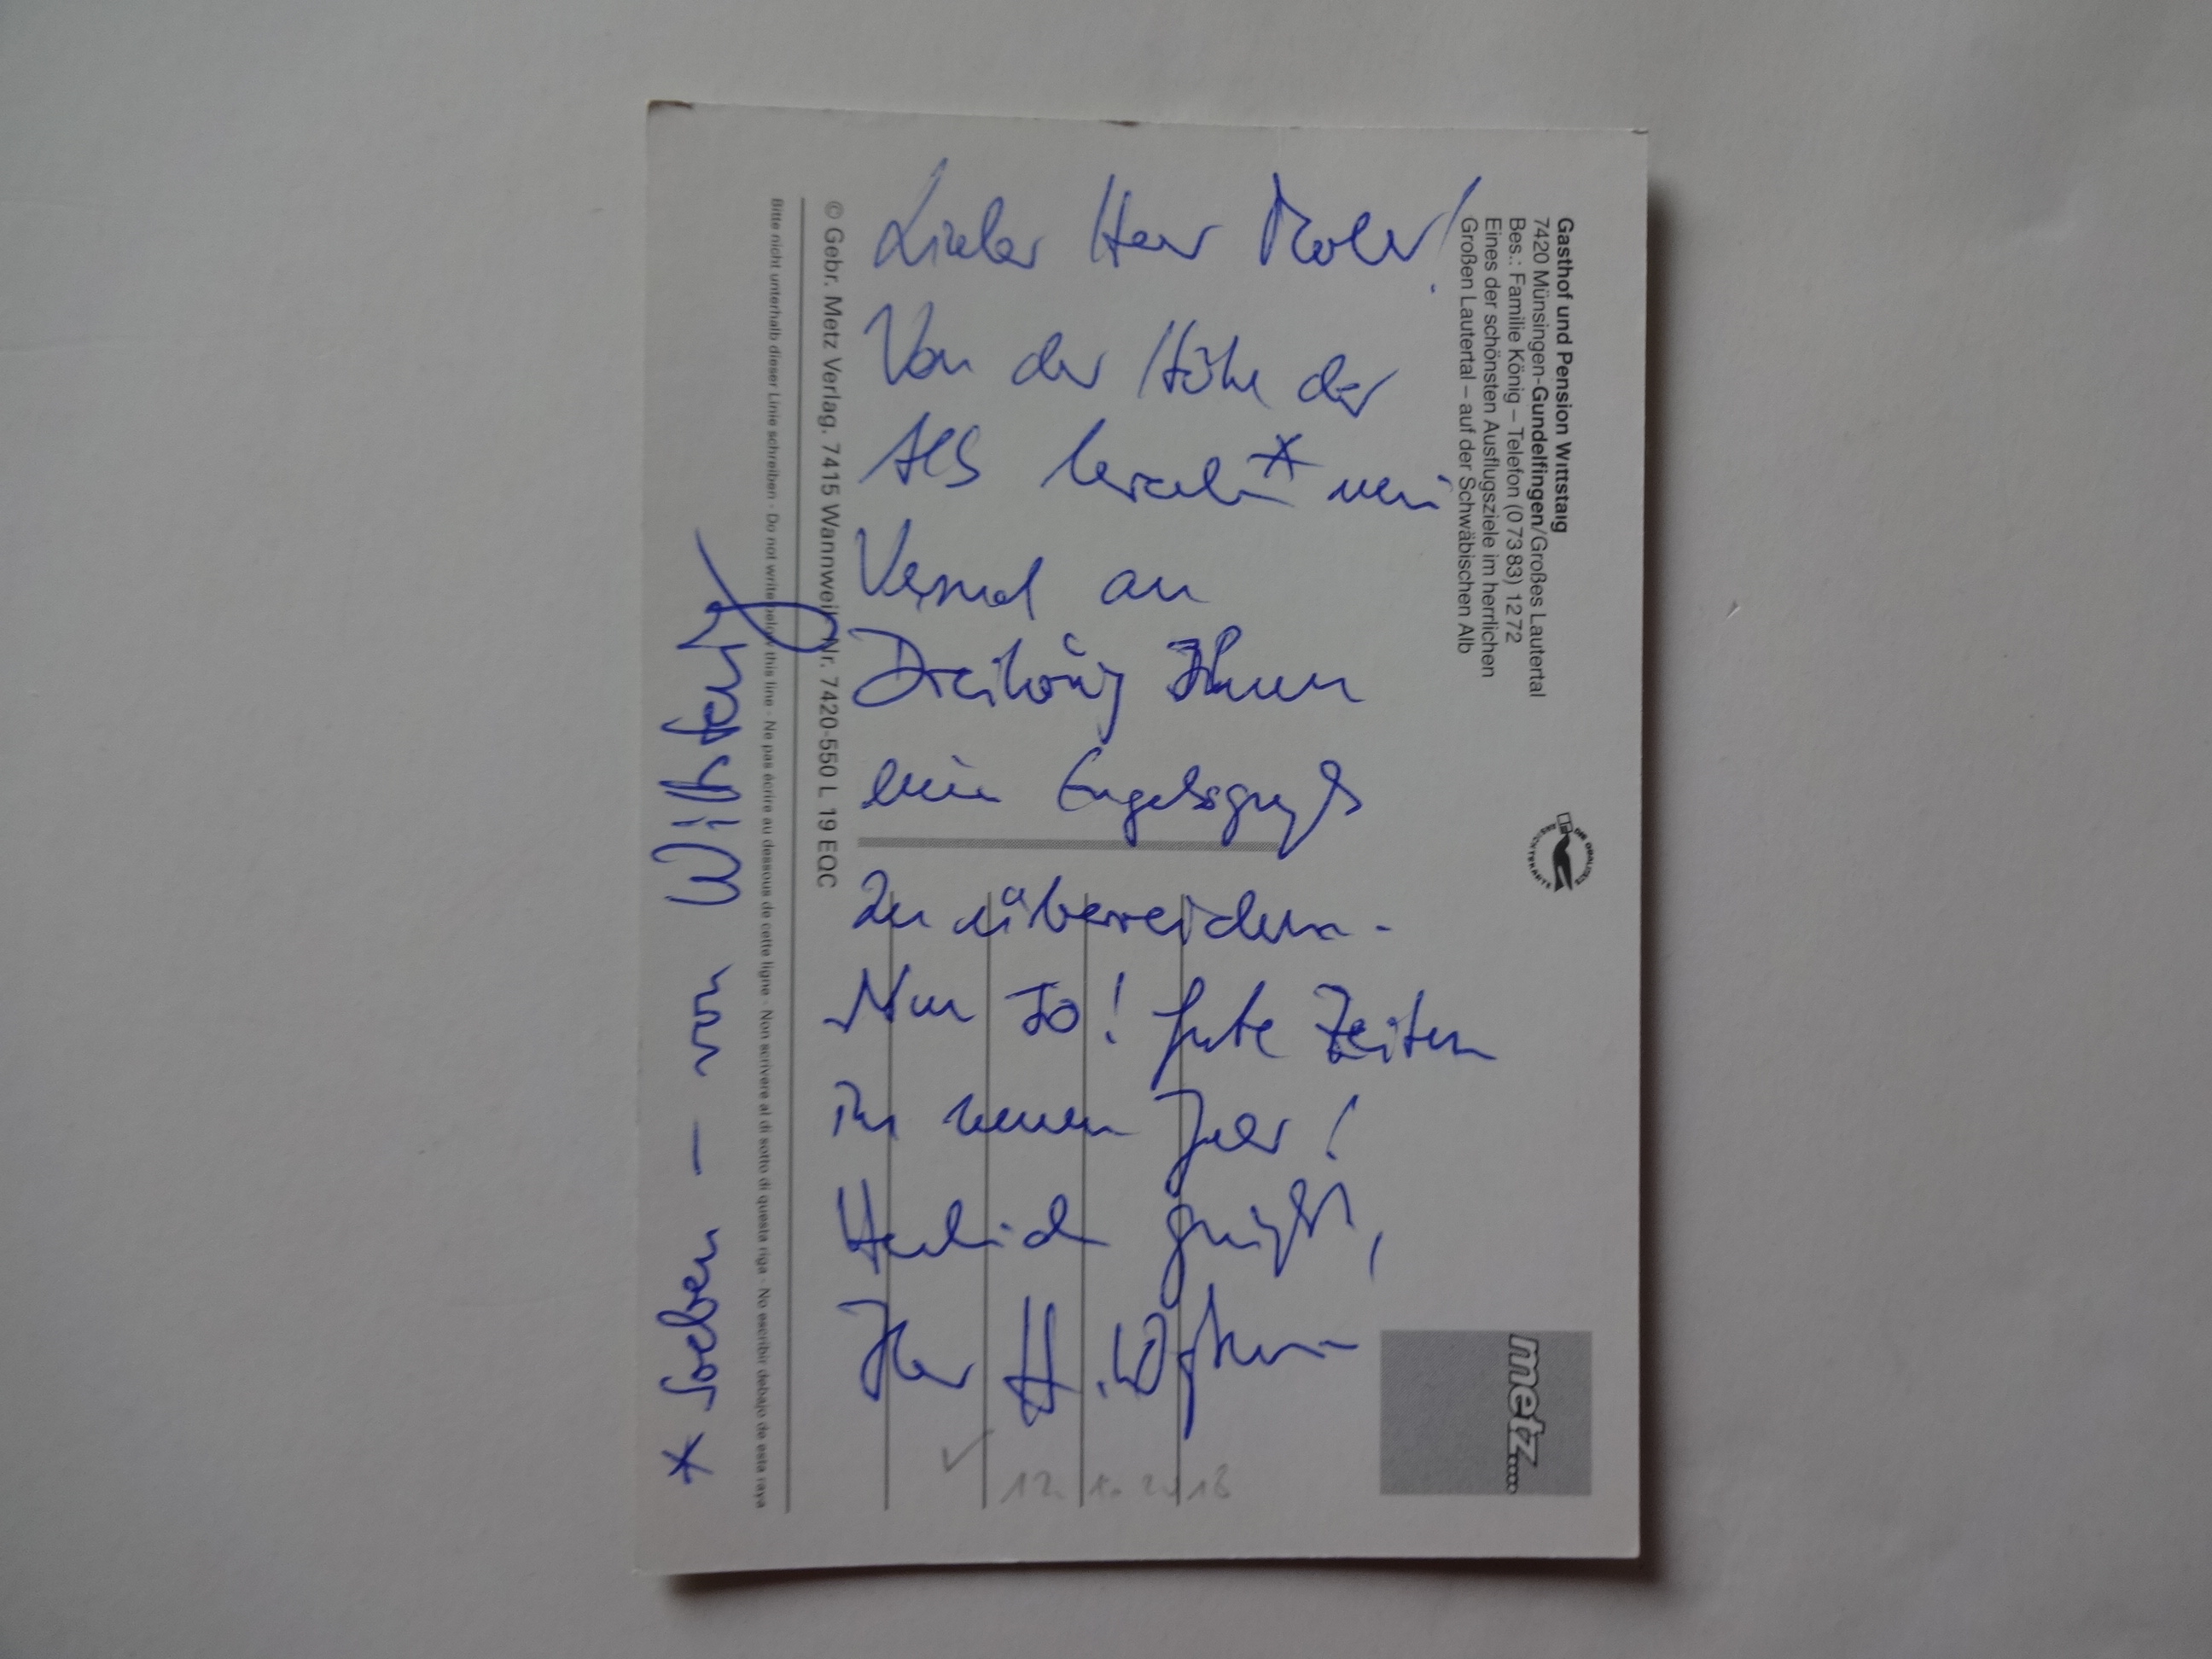 Lieber Herr
Von der Höhe der
Alb * mein
Versuch an
Dreikönig Ihnen
einen Engelsgruß
zu überreichen -
Nur so! Gute Zeiten
im neuen Jahr!
Herzlich grüßt,
Ihr H.
* Soeben — von Wittstaig
12. 1. 2013
Gasthof und Pension Wittstaig
7420 Münsingen-Gundelfingen/Großes Lautertal
Bes.: Familie König – Telefon (0 73 83) 12 72
Eines der schönsten Ausflugsziele im herrlichen
Großen Lautertal – auf der Schwäbischen Alb
metz
© Gebr. Metz Verlag. 7415 Wannweil Nr. 7420-550 L 19 EQC
Bitte nicht unterhalb dieser Linie schreiben · Do not write below this line · Ne pas écrire au dessous de cette ligne · Non scrivere al di sotto di questa riga · No escribir debajo de esta raya